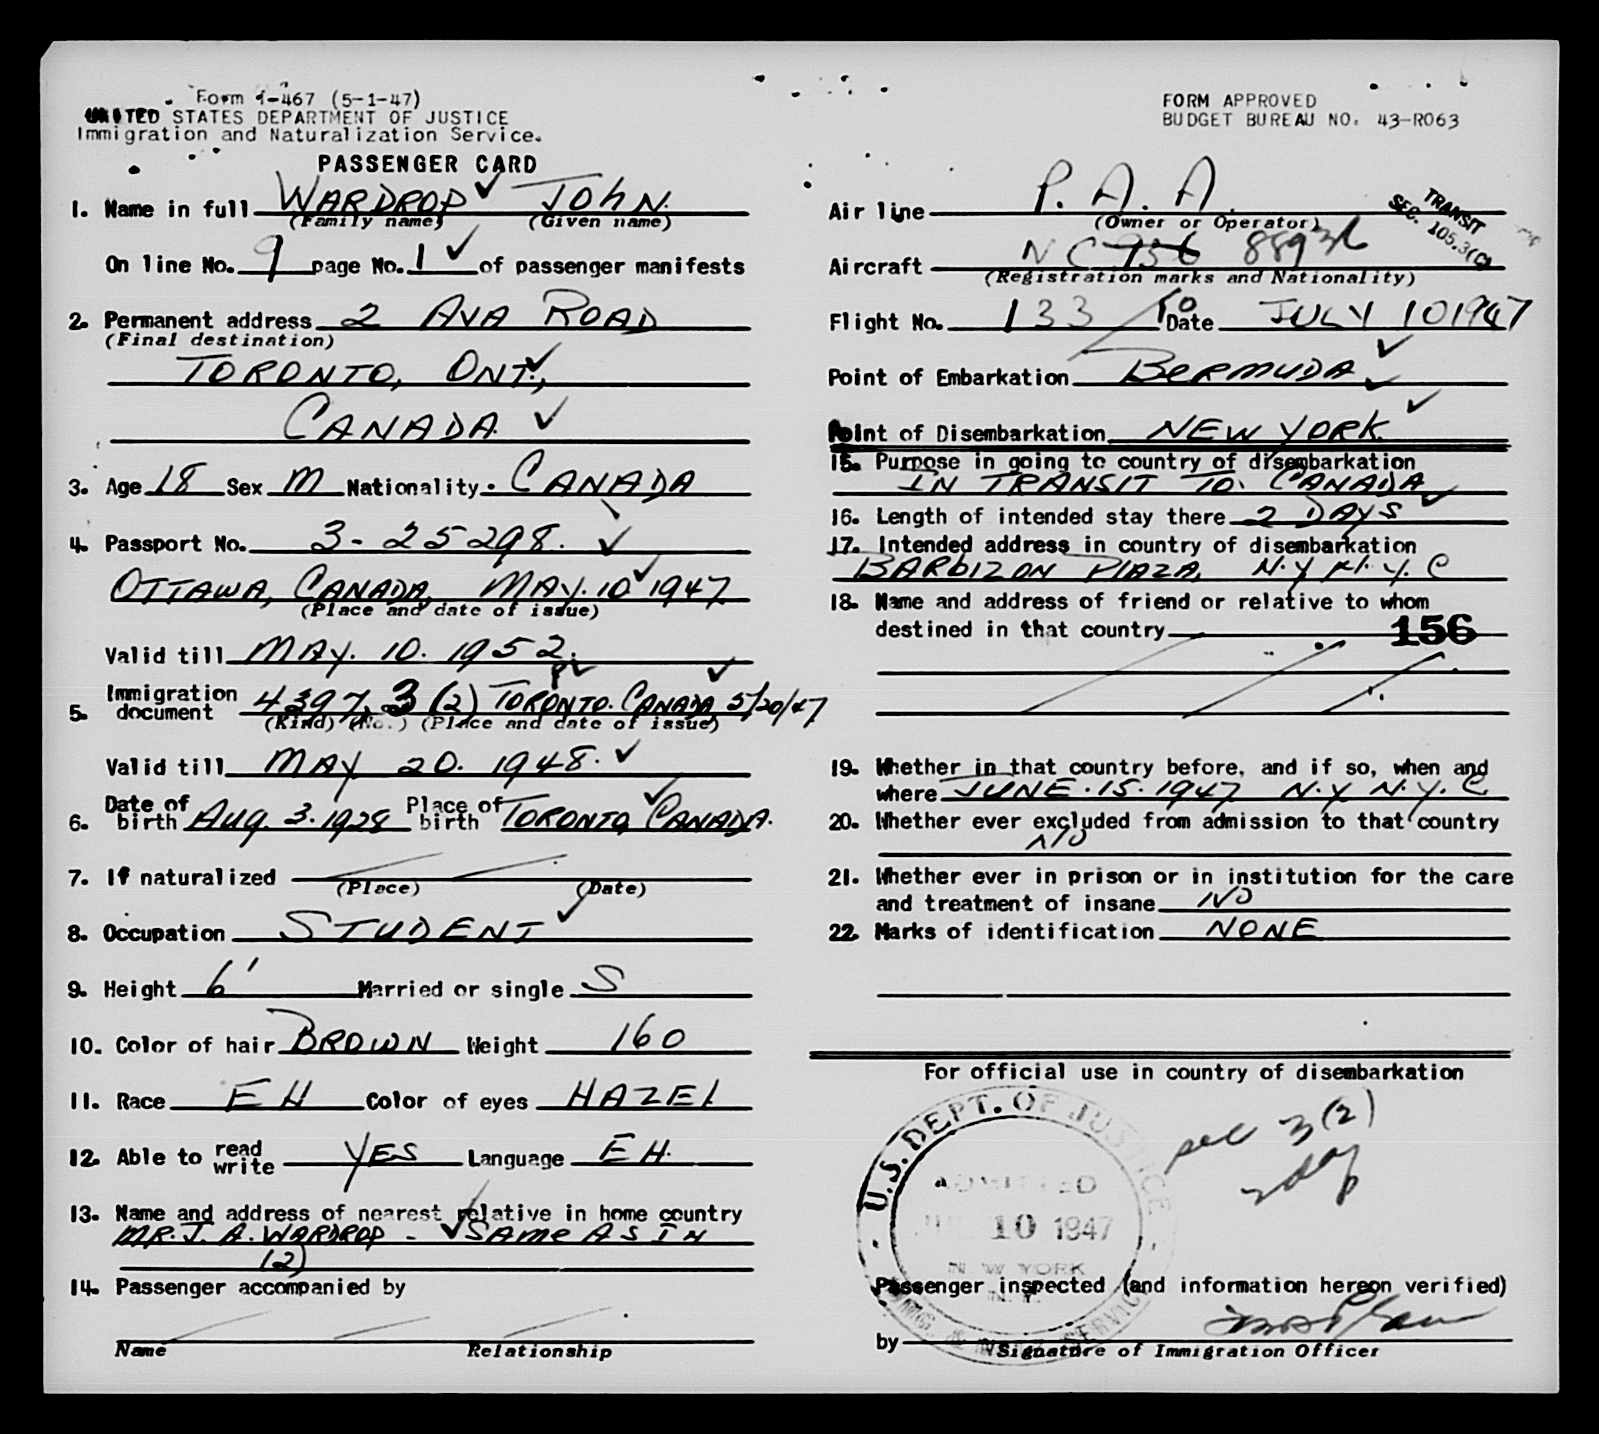 Form I-467 (5-1-47)
UNITED STATES DEPARTMENT OF JUSTICE
Immigration and Naturalization Service.
PASSENGER CARD
1. Name in full WARDROP JOHN.
(Family name) (Given name)
On line No. 9 page No. 1 of passenger manifests
2. Permanent address 2 AVA ROAD
(Final destination)
TORONTO, ONT.,
CANADA
3. Age 18 Sex M Nationality. CANADA
4. Passport No. 3-25298.
OTTAWA, CANADA, MAY. 10 1947
(Place and date of issue)
Valid till MAY. 10. 1952.
5. Immigration document 4397, 3 (2) TORONTO. CANADA 5/20/47
(Kind) (No.) (Place and date of issue)
Valid till MAY 20. 1948.
6. Date of birth AUG. 3. 1928 Place of birth TORONTO, CANADA.
7. If naturalized
(Place) (Date)
8. Occupation STUDENT
9. Height 6' Married or single S
10. Color of hair BROWN Weight 160
11. Race EH Color of eyes HAZEL
12. Able to read write YES Language EH.
13. Name and address of nearest relative in home country
MR. J. A. WARDROP - SAME AS IN
(2)
14. Passenger accompanied by
Name Relationship
FORM APPROVED
BUDGET BUREAU NO. 43-R063
Air line P. A. A.
(Owner or Operator)
TRANSIT
SEC. 105.3(C)
Aircraft NC 956
(Registration marks and Nationality)
Flight No. 133 Date JULY 10 1947
Point of Embarkation BERMUDA
Point of Disembarkation NEW YORK
15. Purpose in going to country of disembarkation
IN TRANSIT TO CANADA
16. Length of intended stay there 2 DAYS
17. Intended address in country of disembarkation
BARBIZON PLAZA, N.Y. N.Y. C
18. Name and address of friend or relative to whom
destined in that country
156
19. Whether in that country before, and if so, when and
where JUNE. 15. 1947 N.Y N.Y. C.
20. Whether ever excluded from admission to that country
NO
21. Whether ever in prison or in institution for the care
and treatment of insane NO
22. Marks of identification NONE
For official use in country of disembarkation
U.S. DEPT. OF JUSTICE
ADMITTED
10 1947
NEW YORK
N.Y.
IMMIG. & NATZ. SERVICE
sec 3(2)
Passenger inspected (and information hereon verified)
by
Signature of Immigration Officer